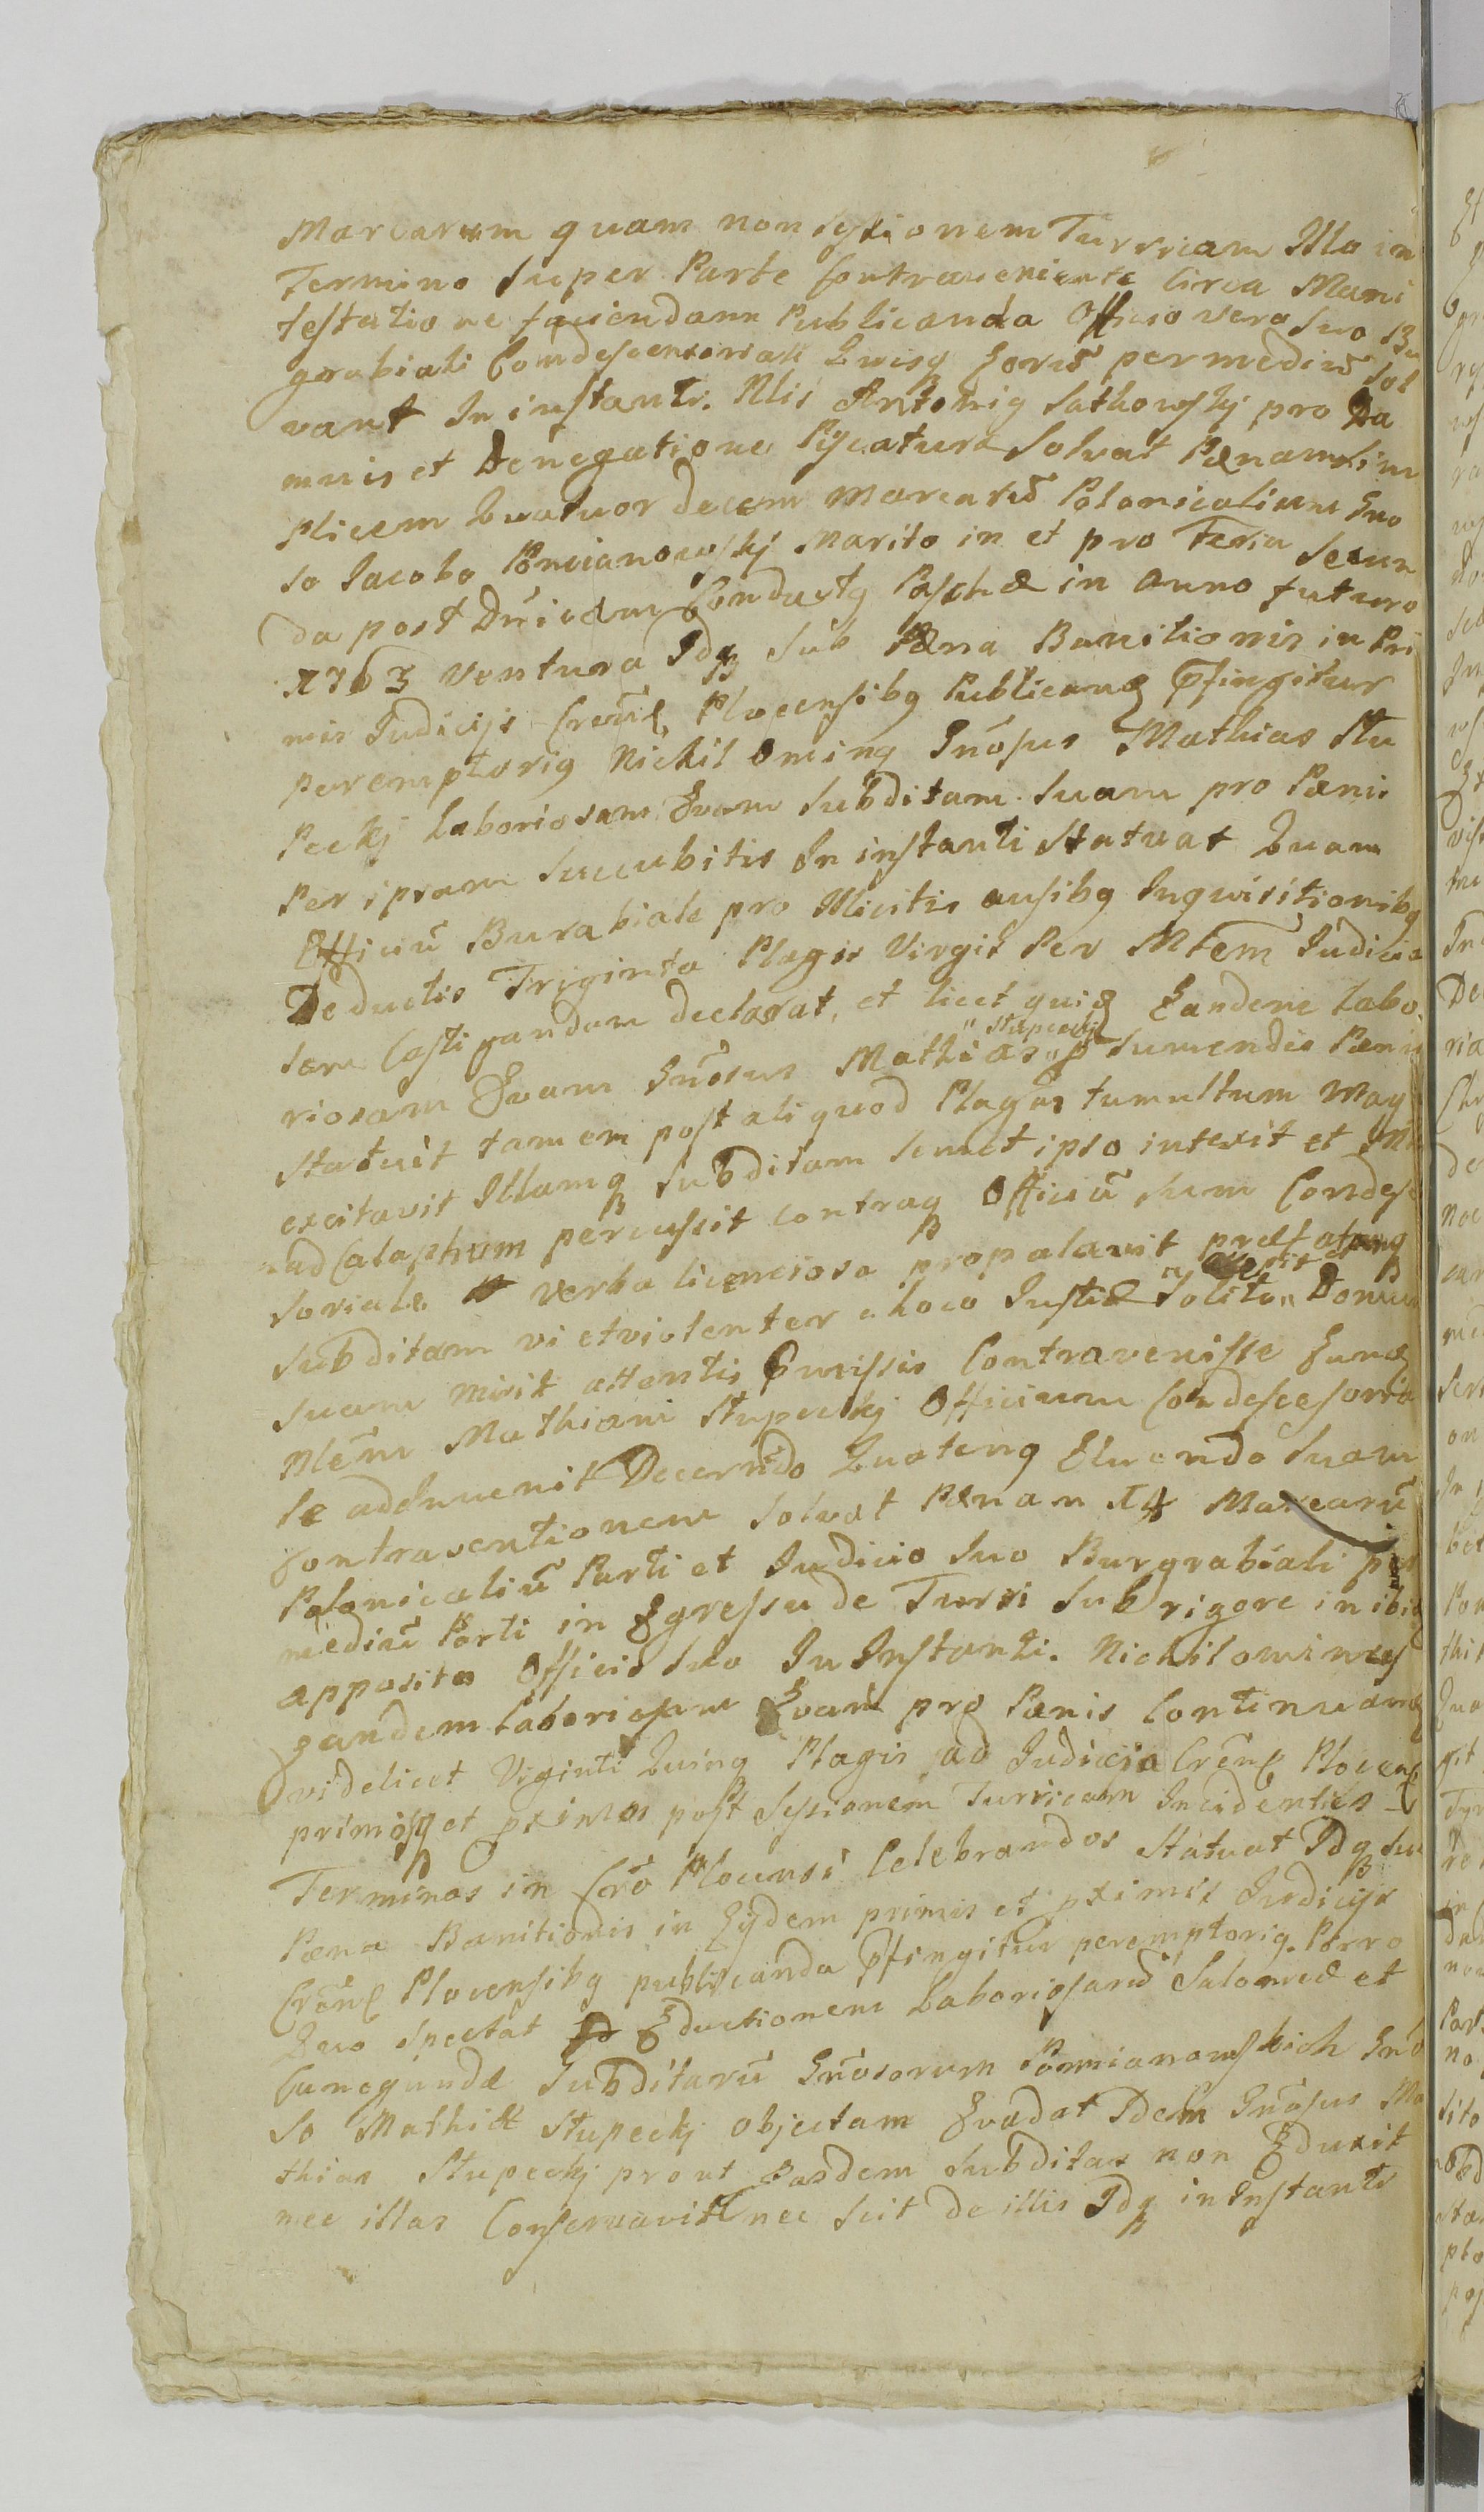 Marcarum quam non sessionem Turriam Illa in
Termino super Parte Contraveniente Circa Mani
festatione faciendam Publicanda Officio vero suo Bu
grabiali Condescensoriali Quisq Eorū per mediū sol
vant In instanti. Nlis Antonig Sathowskj pro Da
mnis et Denegatione Piscatura Solvat Pænam sim
plicem Quatuor decem Marcarū Polonicalium Gno
so Iacobo Pomianowskj Marito in et pro Feria Secun
da post Dnicam Conductg Paschæ in anno futuro
1763 Ventura Idq sub Pæna Banitionis in Pri
mis Iudicijs Plocensibg Publicand pfingitur
peremptorig Nichil oming Gnosus Mathias Stu
peckj Laboriosam Evam subditam suam pro Pænis
Per ipsam Succubitis In instanti Statuat Quam
Officiū Burabiale pro Illicitis ausibg Inqwisitionibg
Deductis Triginta Plagis Virgis Per Mtem Iudicia
lem Castigandam declarat, et licet quid Eandem labo
riosam Evam Gnosus Mathias Stupecki p sumendis Pænis
Statuit tamen post aliquod Plagas tumultum mag
excitavit Illamq subditam semet ipso intexit et
ad Cataphum percussit contraq Officiū sum Condes
soriale verba licenciosa propalavit præfatamq
subditam vi et violenter a loco Iustiæ solito adegit Domum
suam misit attentis pmissis Contravenisse Eund
Nlem Mathiam Stupeckj Officium Condescesoria
le adinvenit Decernendo Quateng Eluendo suam
Contraventionem solvat Pænam 14 Marcarū
Polonicaliū Parti et Iudicio suo Burgrabiali per
mediū Parti in Egressu de Turri sub rigore inibi
apposito Officio suo In Instanti. Nichilominus
Eandem Laboriosam Evam pro Pænis Continuand
videlicet Viginti Quinq Plagis ad Iudicia Plocens
primosq et pximos post Sessionem Turricam Incidentes
Terminos in Plocensi Celebrandos Statuat Idq su
Pæna Banitionis in Eijsdem primis et pximis Iudicijs
Plocensibg publicanda pfingitur peremptorig. Porro
Quo spectat Eductionem Laboriosarū Salomeæ et
Cunegundæ Subditarū Gnosorum Pomianowskich Gno
so Mathiæ Stupeckj objectam Evadat Idem Gnosus Ma
thias Stupeckj prout Easdem subditas non Eduxit
nec illas Conservavit nec scit de illis Idq in Instanti